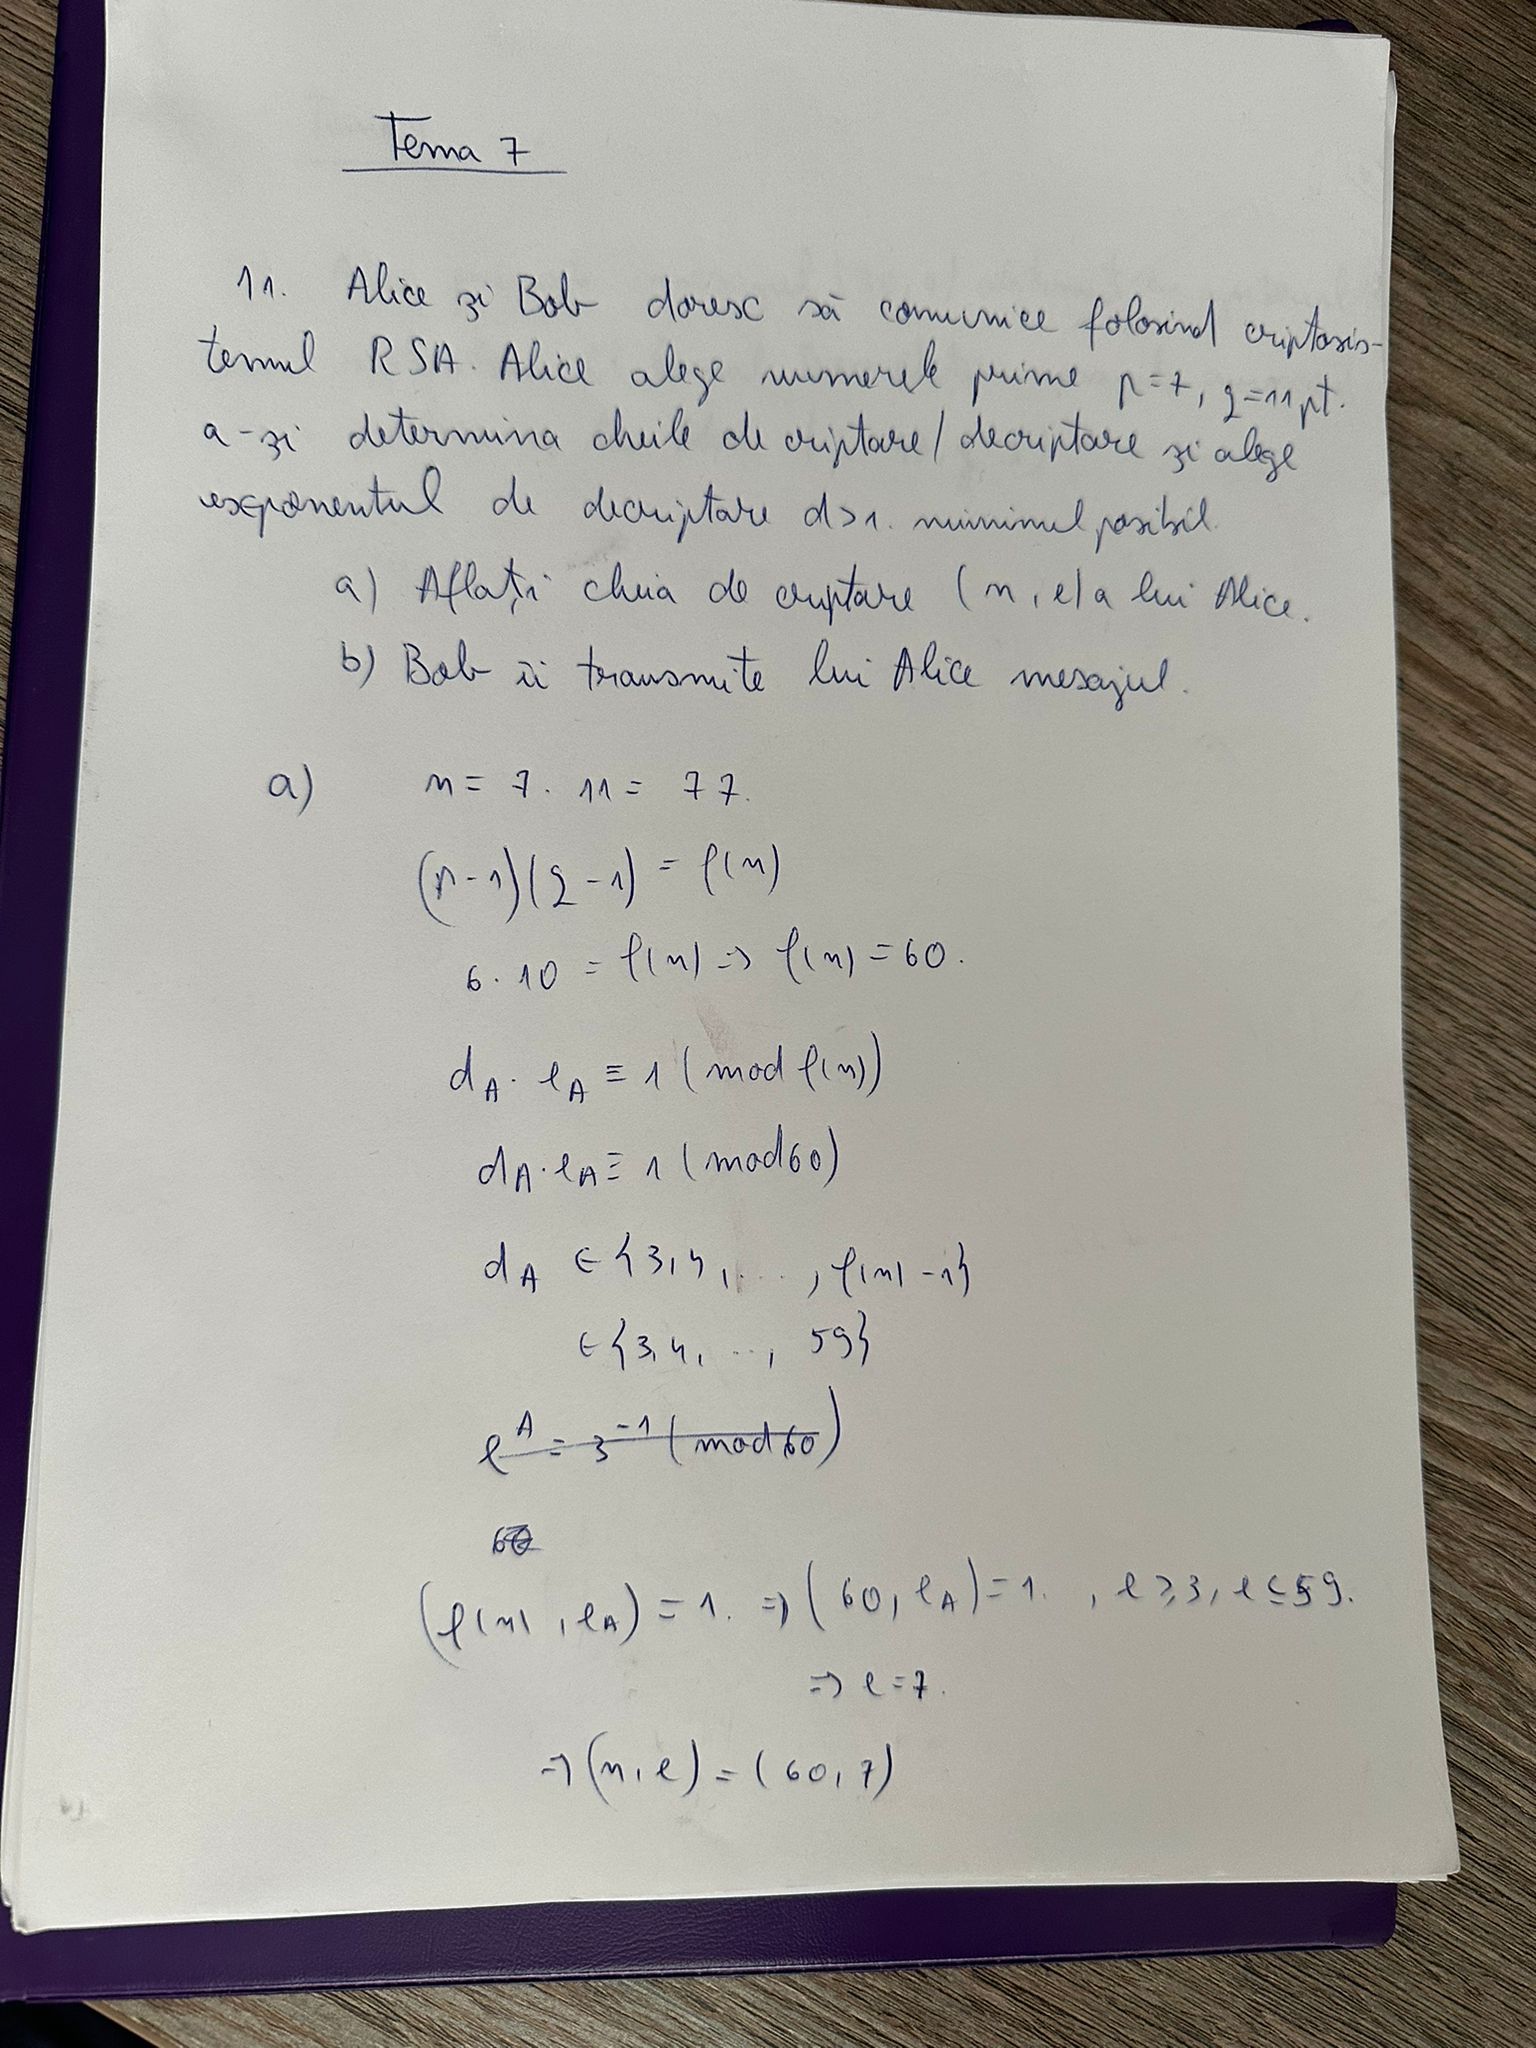 Tema 7
11. Alice și Bob doresc să comunice folosind criptosis-
temul RSA. Alice alege numerele prime p=7, q=11 pt.
a-și determina cheile de criptare/decriptare și alege
exponentul de decriptare d>1. minimul posibil.
a) Aflați cheia de criptare (n, e) a lui Alice.
b) Bob îi transmite lui Alice mesajul.
a) n = 7 · 11 = 77.
(p-1)(q-1) = φ(n)
6 · 10 = φ(n) => φ(n) = 60.
d_A · e_A ≡ 1 (mod φ(n))
d_A · e_A ≡ 1 (mod 60)
d_A ∈ {3,4,..., φ(n)-1}
∈ {3,4,..., 59}
e^A = 3^-1 (mod 60)
(φ(n), e_A) = 1. => (60, e_A) = 1. , e ≥ 3, e ≤ 59.
=> e = 7.
=> (n, e) = (60, 7)